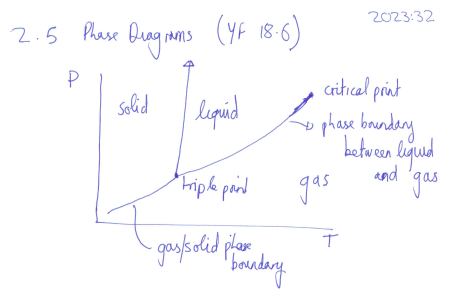 2023:32
2.5 Phase Diagrams (YF 18.6)
P
solid
liquid
critical point
phase boundary
between liquid
and gas
triple point
gas
T
gas/solid phase
boundary